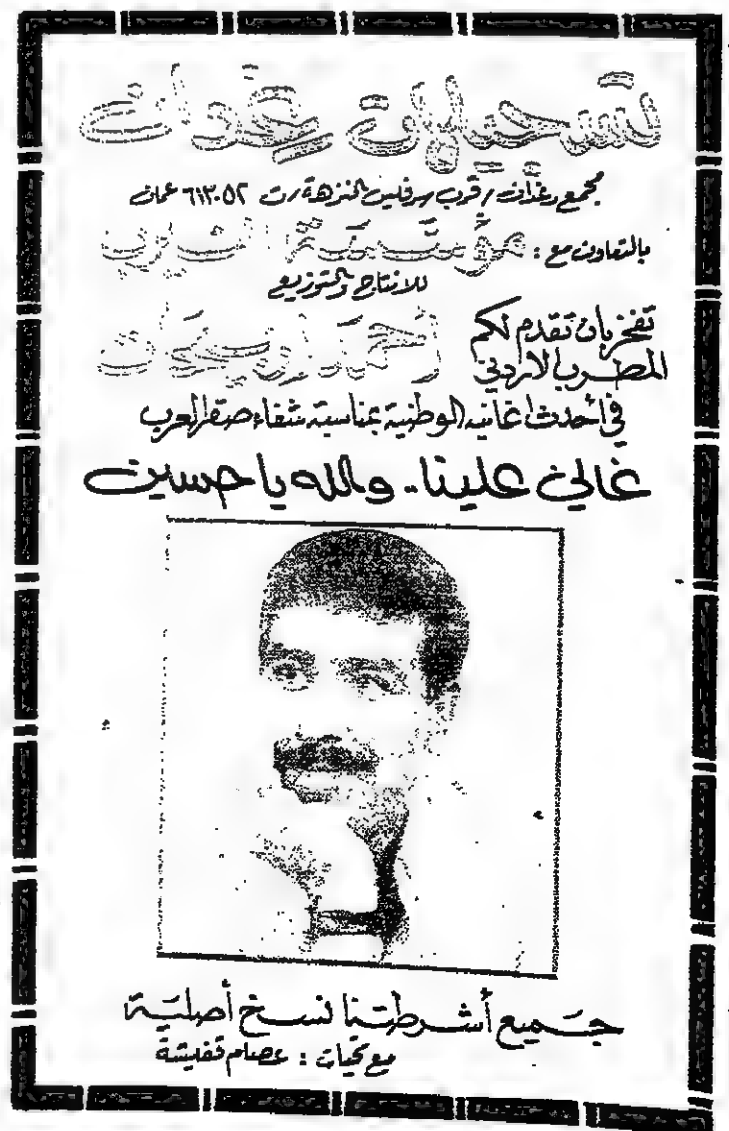 تسجيلات رغدان
مجمع رغدان / قرب سرفيس النزهة / ت ٦١٣٠٥٢ عمان
بالتعاون مع : مؤسسة
للانتاج والتوزيع
تفخر بان تقدم لكم
المطرب الاردني احمد
في أحدث اغانيه الوطنية بمناسبة شفاء صقر العرب
غالي علينا.. والله يا حسين
جميع أشرطتنا نسخ أصلية
مع تحيات : عصام قفيشة